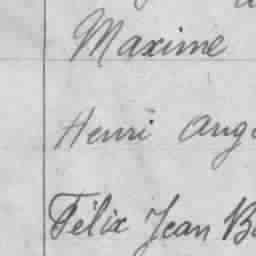 Maxime
Henri Ang
Félix Jean B